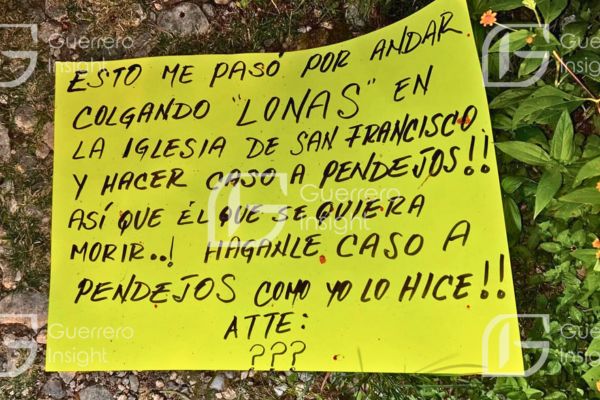 ESTO ME PASÓ POR ANDAR
COLGANDO "LONAS" EN
LA IGLESIA DE SAN FRANCISCO
Y HACER CASO A PENDEJOS!!
ASÍ QUE ÉL QUE SE QUIERA
MORIR..! HAGANLE CASO A
PENDEJOS COMO YO LO HICE!!
ATTE:
???
Guerrero
Insight
Guerrero
Insight
Guerrero
Insight
Guerrero
Insight
Guerrero
Insight